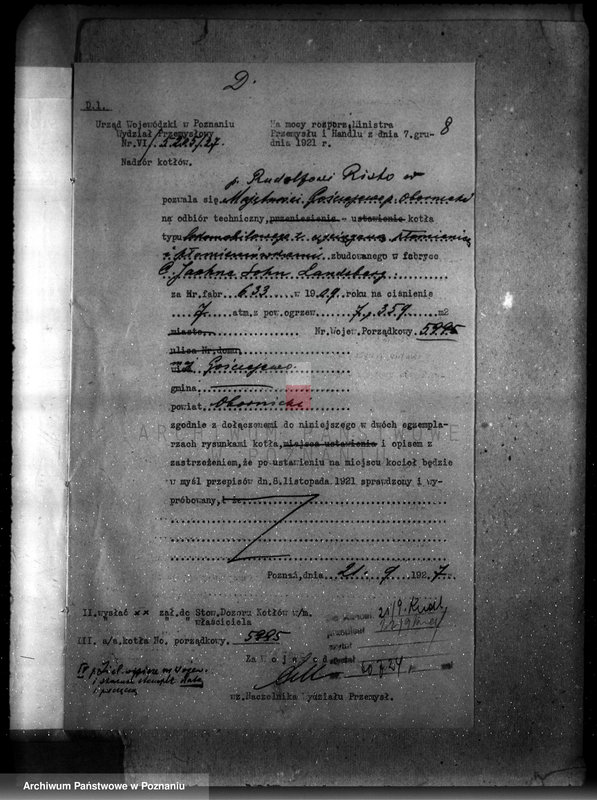 D.
D.1.
Urząd Wojewódzki w Poznaniu
Wydział Przemysłowy
Nr.VI/5225/27.
Nadzór kotłów.
Na mocy rozporz.Ministra
Przemysłu i Handlu z dnia 7.gru-
dnia 1921 r.
8
p. Rudolfowi Risto w
pozwala się Majętności Gościejewo p. Obornicki
na odbiór techniczny, przeniesienie - ustawienie kotła
typu lokomobilowego z
zbudowanego w fabryce
C. Jaehne Sohn Landsberg
za Nr.fabr 633 w 1909 roku na ciśnienie
7 atm.z pow.ogrzew. 7,359 m2
miasto Nr.Wojew.Porządkowy 5995
ulica Nr.domu
Gościejewo.
gmina
powiat Obornicki
zgodnie z dołączonemi do niniejszego w dwóch egzempla-
rzach rysunkami kotła, miejsca ustawienia i opisem z
zastrzeżeniem, że po ustawieniu na miejscu kocioł będzie
w myśl przepisów dn.8.listopada.1921 sprawdzony i wy-
próbowany, i że
Poznań,dnia 21. 9 1927.
II. wysłać xx zał.do Stow.Dozoru Kotłów w/m.
" " właściciela
III. a/a.kotła No. porządkowy. 5995
Za Wojewodę
wz.Naczelnika Wydziału Przemysł.
Archiwum Państwowe w Poznaniu